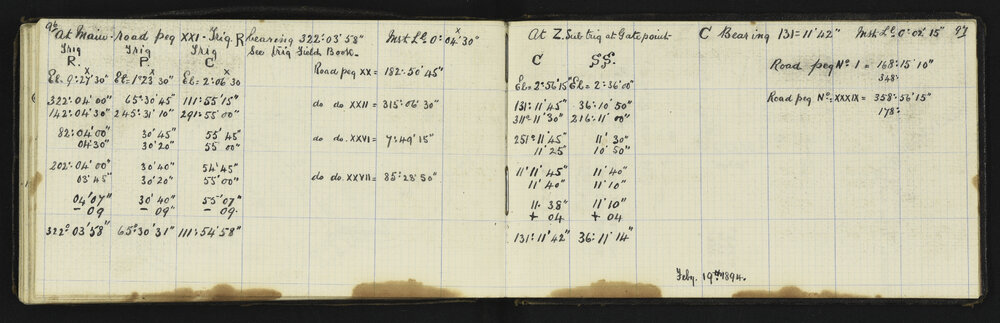 96
At Main-road peg XXI - Trig. R bearing 322°·03'58" Inst Lc 0°:04'30"
See trig Field Book.
Trig Trig Trig
R. P. C
El. 9°:27'30" El = 1°23'30" El = 2°:06'30
322°:04'00" 65°:30'45" 111°:55'15"
142°:04'30" 245°:31'10" 291°:55'00"
82°:04'00" 30'45" 55'45"
04'30" 30'20" 55'00
202°:04'00" 30'40" 54'45"
03'45" 30'20" 55'00"
04'07" 30'40" 55'07"
- 09 - 09" - 09.
322°03'58" 65°:30'31" 111°:54'58"
Road peg XX = 182°:50'45"
do do XXII = 315°:06'30"
do do. XXVI = 7°:49'15"
do do. XXVII = 85°:28'50"
At Z. Sub trig at Gate point C Bearing 131=11'42" Inst Lc 0°:02'15" 97
C SS.
El = 2°:56'15" El = 2°:36'00"
131°:11'45" 36°:10'50"
311°:11'30" 216°:11'00"
251°:11'45" 11'30"
11'25" 10'50"
11'11'45" 11'40"
11'40" 11'10"
11. 38" 11'10"
+ 04 + 04
131°:11'42" 36°:11'14"
Road peg No 1 = 168°:15'10"
348°
Road peg No. XXXIX = 358°:56'15"
178°
Feby. 19th 1894.